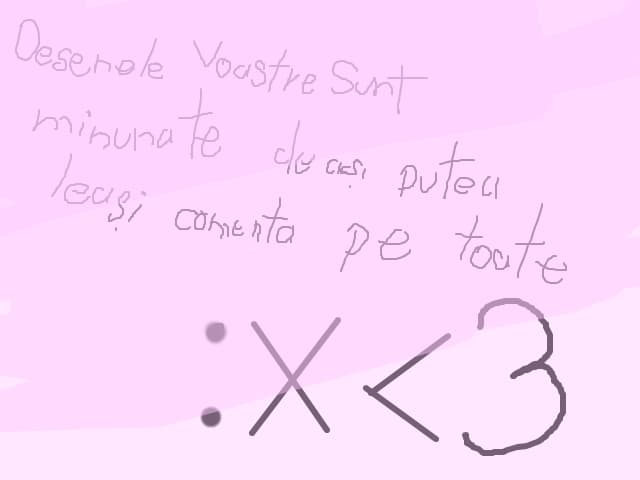 Desenele Voastre Sunt
minunate du casi putea
leasi comenta pe toate
:X <3